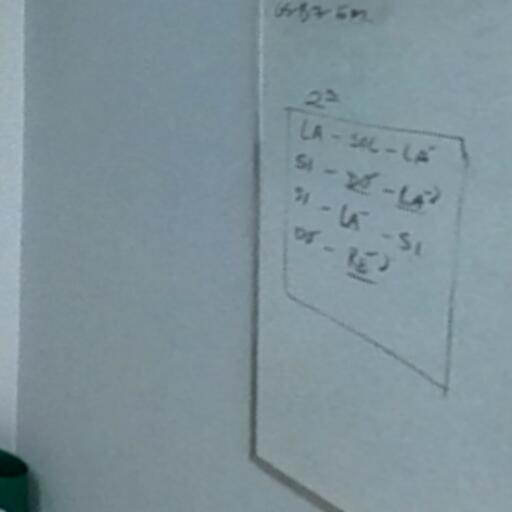 2ª
LA - SOL - LA
SI - DO - LA
SI - LA - SI
DO - RE